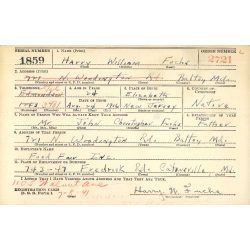 SERIAL NUMBER 1. NAME (Print) ORDER NUMBER
1859 Harry William Fuchs 2721
2. ADDRESS (Print)
721 N. Woodington Rd. Balto, Md.
3. TELEPHONE 4. AGE IN YEARS 5. PLACE OF BIRTH 6. COUNTRY OF CITIZENSHIP
Edmondson 24 Elizabeth
DATE OF BIRTH
Apr. 24 1916 New Jersey Native
7. NAME OF PERSON WHO WILL ALWAYS KNOW YOUR ADDRESS 8. RELATIONSHIP OF THAT PERSON
Mr. John Christopher Fuchs Father
9. ADDRESS OF THAT PERSON
721 N. Woodington Rd. Balto, Md.
10. EMPLOYER'S NAME
Food Fair Inc.
11. PLACE OF EMPLOYMENT OR BUSINESS
743-47 Fredrick Rd. Catonsville Md.
I AFFIRM THAT I HAVE VERIFIED ABOVE ANSWERS AND THAT THEY ARE TRUE.
Walnut Ave
REGISTRATION CARD
D. S. S. Form 1
Harry W. Fuchs